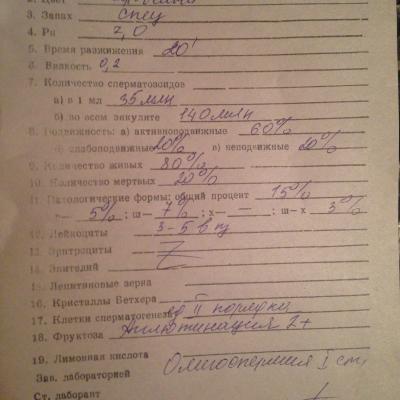 2. Цвет
3. Запах спец
4. Рн 7,0
5. Время разжижения 20'
6. Вязкость 0,2
7. Количество сперматозоидов
а) в 1 мл 35 млн
б) во всем эякуляте 140 млн
8. Подвижность: а) активноподвижные 60%
б) слабоподвижные 20% в) неподвижные 20%
9. Количество живых 80%
10. Количество мертвых 20%
11. Патологические формы: общий процент 15%
г— 5%; ш— 7%; х— — ; ш—х 3%
12. Лейкоциты 3-5 в пз
13. Эритроциты
14. Эпителий
15. Лецитиновые зерна
16. Кристаллы Бетхера
17. Клетки сперматогенеза II порядка
18. Фруктоза Агглютинация 2+
19. Лимонная кислота Олигоспермия I ст.
Зав. лабораторией
Ст. лаборант